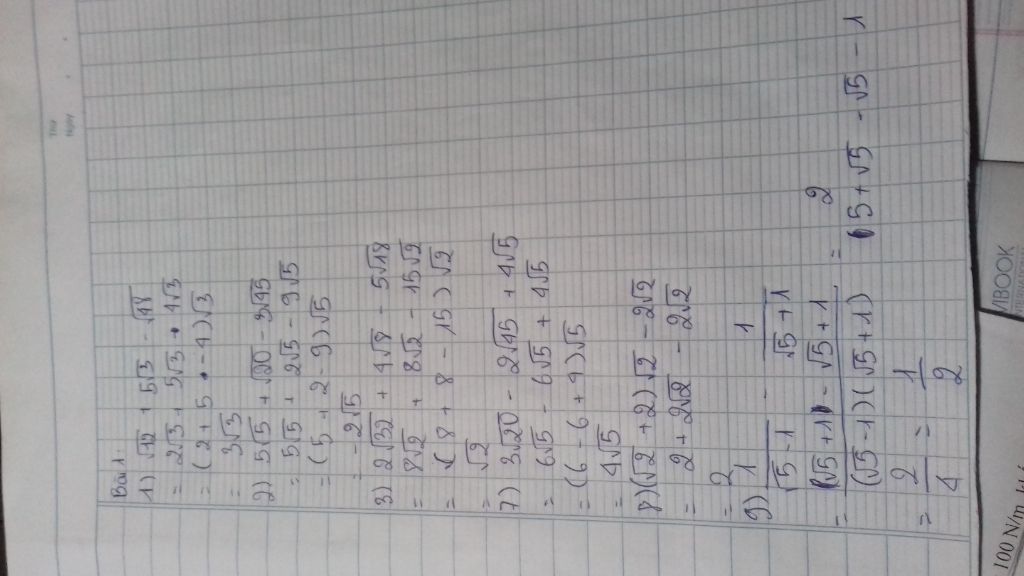 Thứ
Ngày
Bài 1
1) √12 + 5√3 - √48
= 2√3 + 5√3 - 4√3
= (2 + 5 - 4)√3
= 3√3
2) 5√5 + √20 - 3√45
= 5√5 + 2√5 - 9√5
= (5 + 2 - 9)√5
= - 2√5
3) 2√32 + 4√8 - 5√18
= 8√2 + 8√2 - 15√2
= (8 + 8 - 15)√2
= √2
7) 3√20 - 2√45 + 4√5
= 6√5 - 6√5 + 4√5
= (6 - 6 + 4)√5
= 4√5
8) (√2 + 2)√2 - 2√2
= 2 + 2√2 - 2√2
= 2
9) 1/(√5 - 1) - 1/(√5 + 1)
= (√5 + 1 - √5 + 1)/((√5 - 1)(√5 + 1)) = 2/(5 + √5 - √5 - 1)
= 2/4 = 1/2
100 N/m